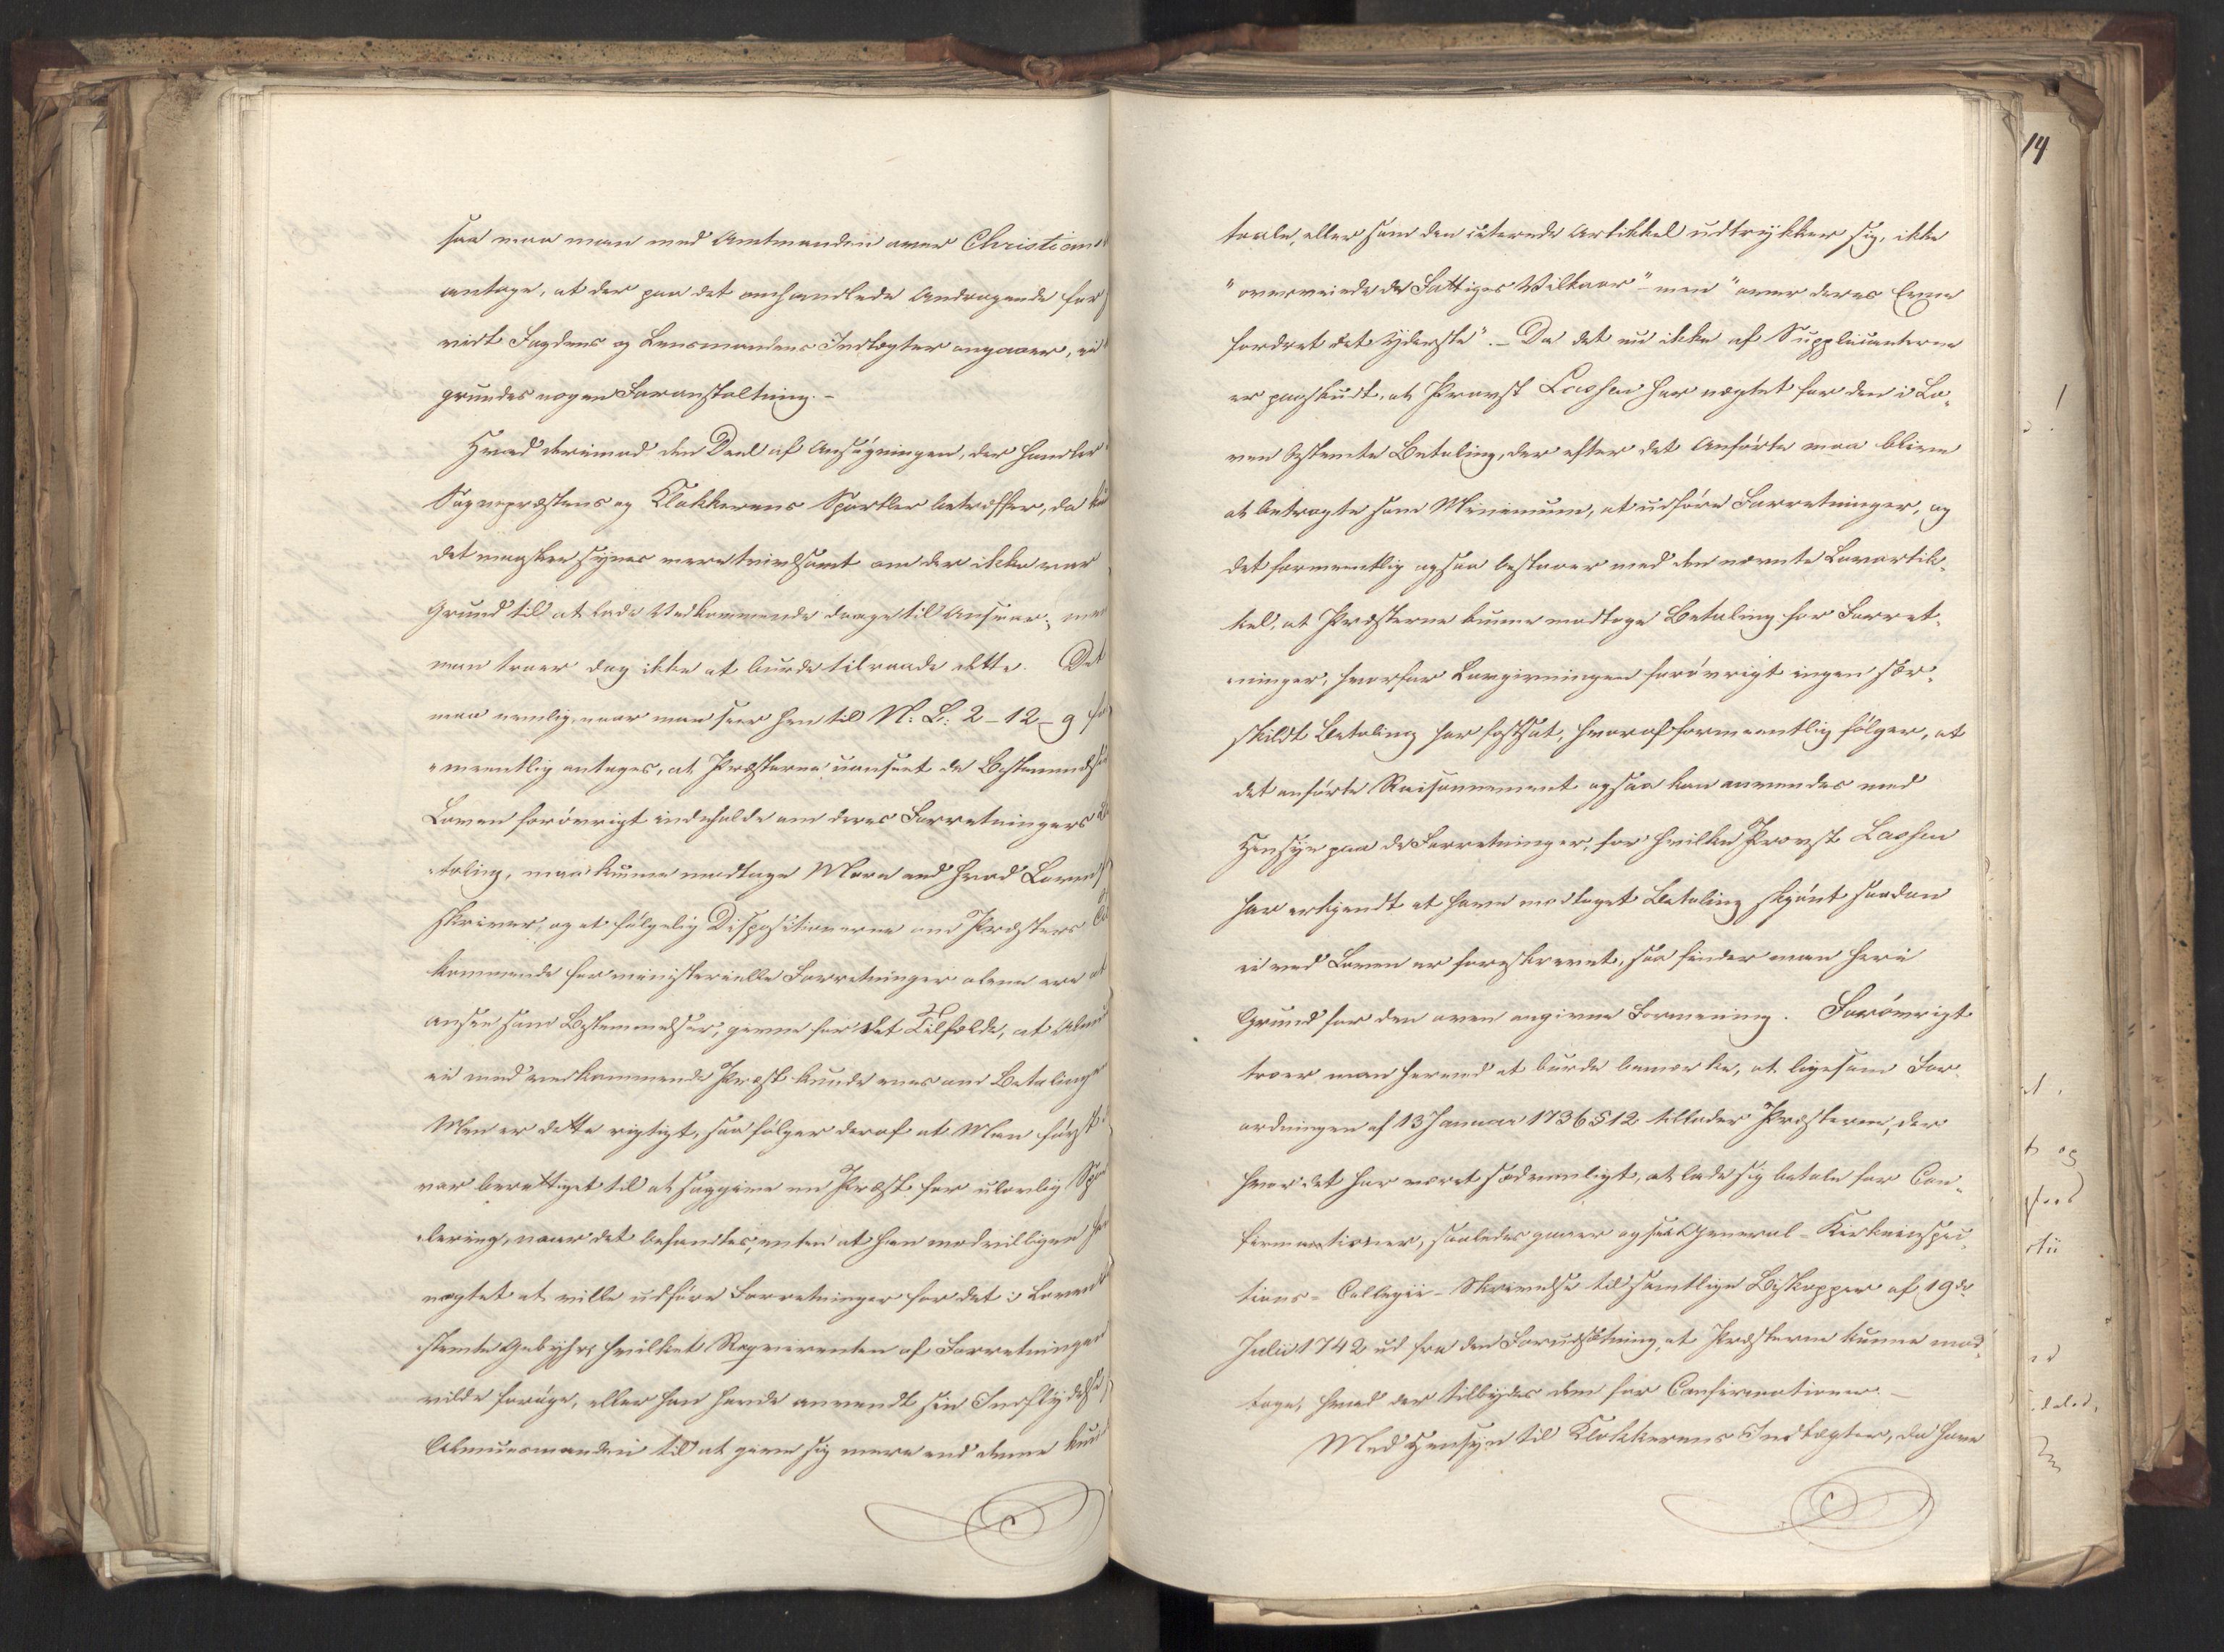 saa maa man med Amtmanden over Christians
antage, at der paa det omhandlede Andragende for
vidt Fogdens og Lensmandens Indtægter angaaer, ei
grundes nogen Foranstaltning. –
Hvad derimod den Deel af Ansøgningen, der handler
Sognepræstens og Klokkerens Sportler betræffer, da
det maaskee synes mere tvivlsomt om der ikke var
Grund til at lade Vedkommende drage til Ansvar; men
man troer dog ikke at burde tilraade dette. Det
maa nemlig, naar man seer hen til N: L: 2-12-9 for
meentlig antages, at Præsterne uanseet de Bestemmelser
Loven forøvrigt indeholde om deres Forretningers
taling, maa kunne modtage Mere end hvad Loven
skriver, og at følgelig Dispositionerne om Præsters
kommende for ministerielle Forretninger alene ere at
ansee som Bestemmelser, givne for det Tilfælde, at
ei med vedkommende Præst kunde enes om Betalingen
Men er dette rigtigt, saa følger deraf at Man først
var berettiget til at sagsøge en Præst for ulovlig
lering, naar det befandtes, enten at han modvilligen
nægtet at ville udføre Forretninger for det i Loven
stemte Gebyhr, hvilket Reqvirenten af Forretningen
vilde forøge, eller han havde anvendt sin Indflydelse
Almuesmanden til at give sig mere end denne kunde
14
taale, eller som den citerede Artikkel udtrykker sig, ikke
"overveiede de Fattiges Vilkaar" – men "over deres Evne
fordret det Yderste". – Da det nu ikke af Supplicanterne
er paaskudt, at Provst Lassen har nægtet for den i Lo¬
ven bestemte Betaling, der efter det Anførte maa blive
at betragte som Minimum, at udføre Forretninger, og
det formeentlig ogsaa bestaaer med den nævnte Lovartik¬
kel, at Præsterne kunne modtage Betaling for Forret¬
ninger, hvorfor Lovgivningen forøvrigt ingen sær¬
skildt Betaling har fastsat, hvoraf formeentlig følger, at
det anførte Raisonnement ogsaa kan anvendes med
Hensyn paa de Forretninger, for hvilke Provst Lassen
har erkjendt at have modtaget Betaling skjønt saadan
ei ved Loven er foreskrevet, saa finder man heri
Grund for den oven angivne Formening. Forøvrigt
troer man herved at burde bemærke, at ligesom For¬
ordningen af 13 Januar 1736 § 12 tillader Præsterne, der
hvor det har været sædvanligt, at lade sig betale for Con¬
firmationer, saaledes gaaer ogsaa General-Kirkeinspec¬
tions-Collegii-Skrivelse til samtlige Biskopper af 19de
Julii 1742 ud fra den Forudsætning, at Præsterne kunne mod¬
tage, hvad der tilbydes dem for Confirmationer. –
Med Hensyn til Klokkerens Indtægter, da have